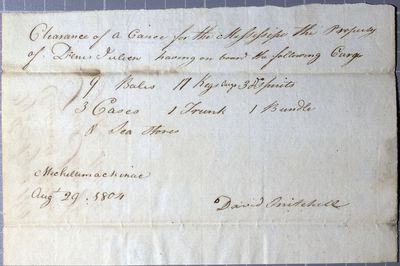 Clearance of a Canoe for the Messisipi the Property
of Denis Julien having on board the following Cargo
9 Bales 17 Kegs 3 Spirits
3 Cases 1 Trunk 1 Bundle
8 Sea Stores
Michilimackinac
Augt 29. 1804
David Mitchell